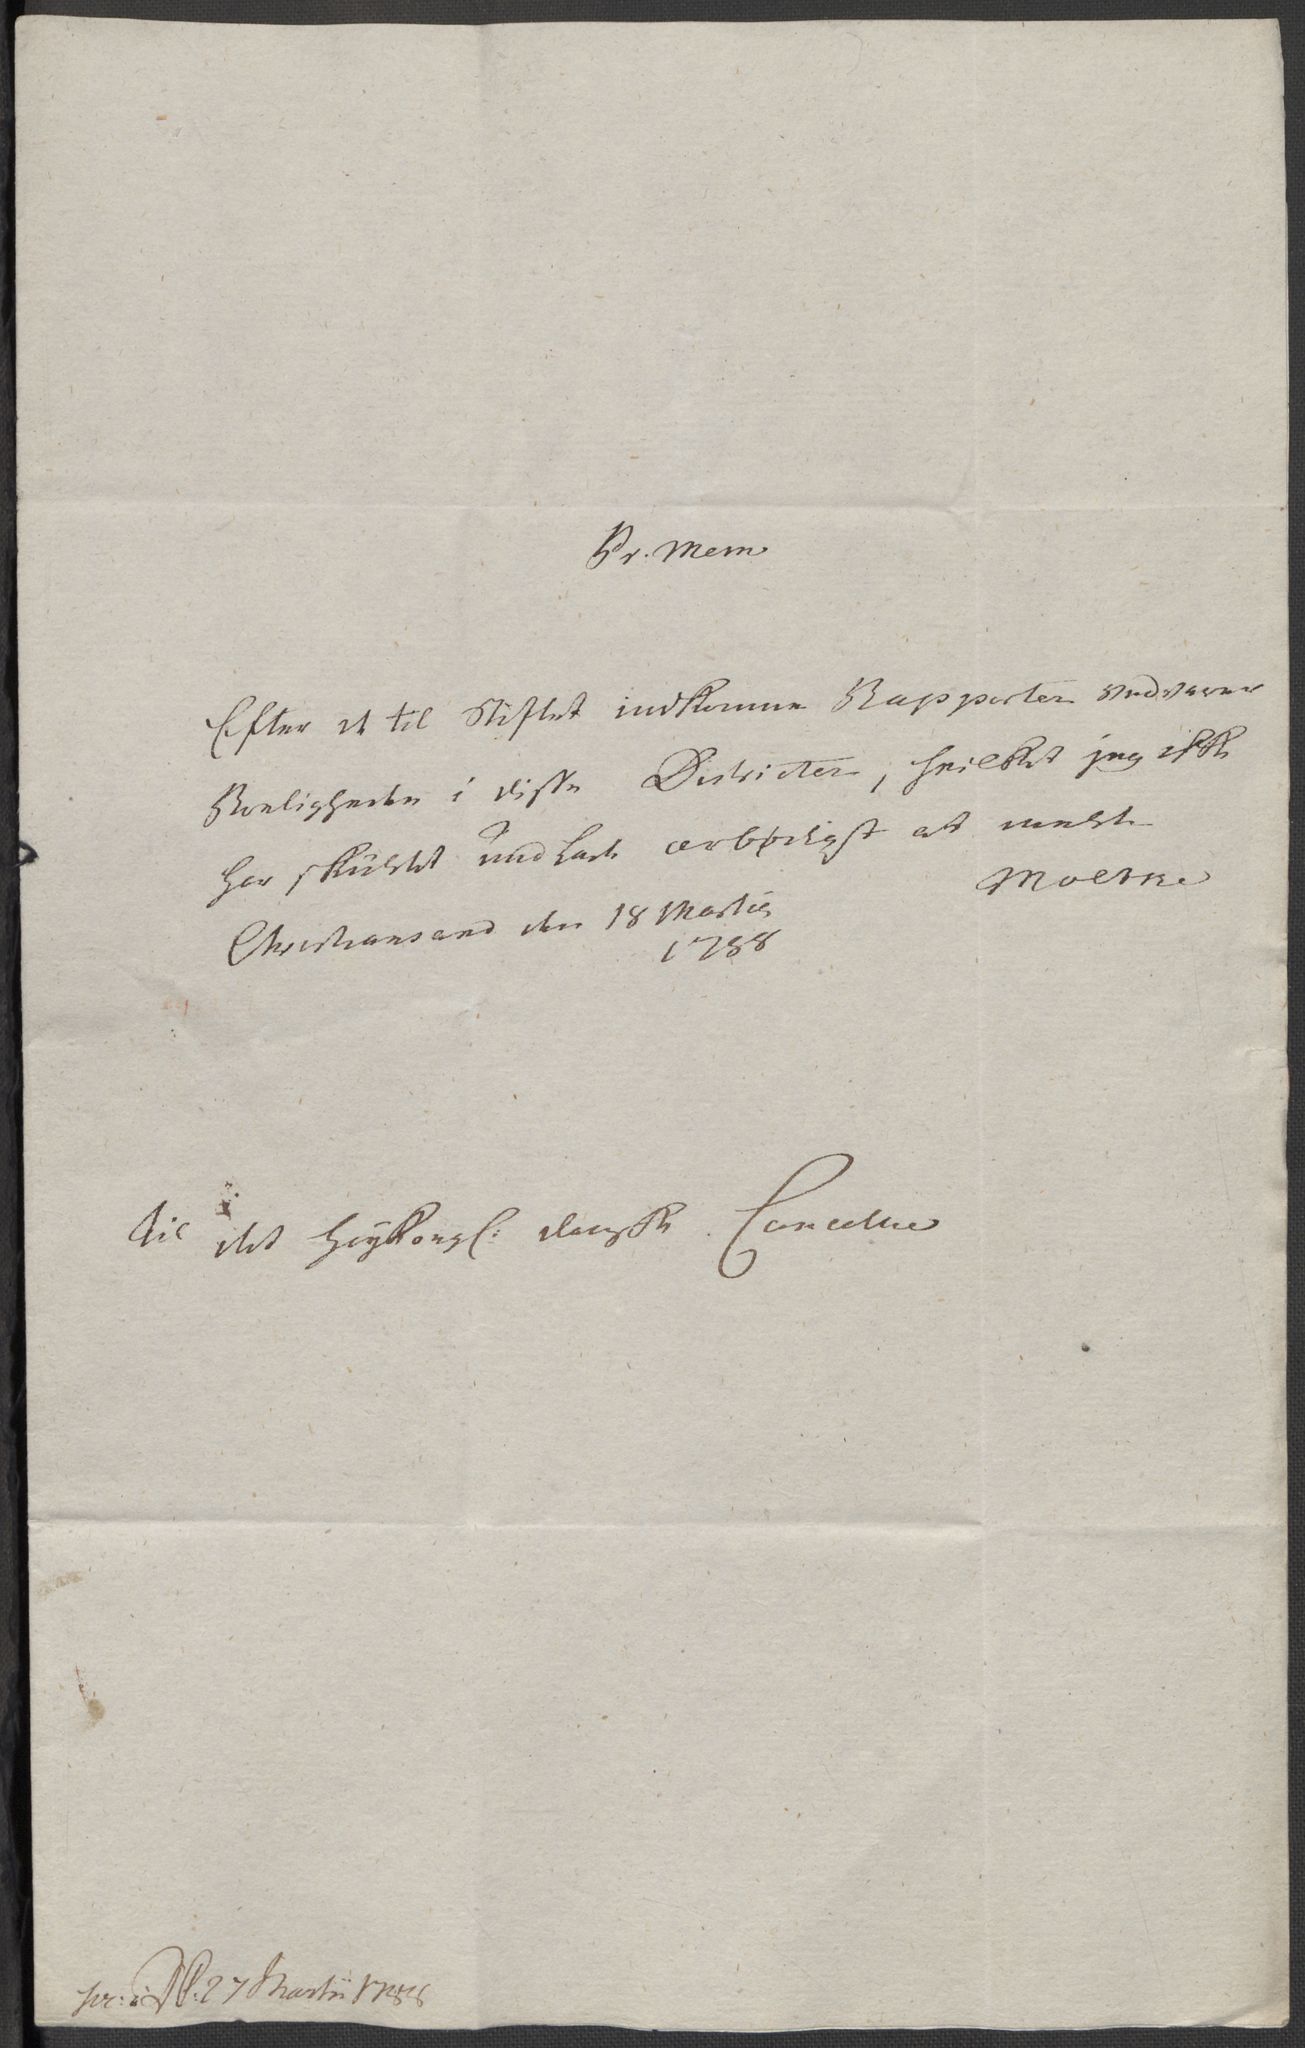 Pr. Mem
Efter de til Stiftet indkomne Rapporter vedvarer
Roeligheden i disse Districter, hvilket jeg ikke
har skuldet undlade ærbødigst at melde
Moltke
Christiansand den 18 Martii
1788
til det høykongl: danske Cancellie
pr: 27 Martii 1788